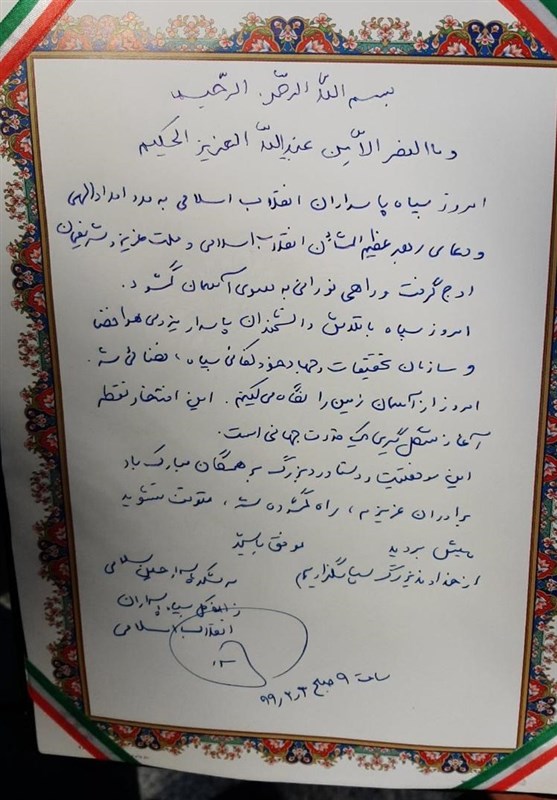 بسم الله الرحمن الرحیم
و ما النصر الا من عندالله العزیز الحکیم
امروز سپاه پاسداران انقلاب اسلامی به مدد امداد الهی
و دعای رهبر عظیم الشان انقلاب اسلامی و ملت عزیز و شریفمان
اوج گرفت و راهی نورانی به سوی آسمان گشود.
امروز سپاه با تلاش دانشمندان پاسدار نیروی هوافضا
و سازمان تحقیقات و جهاد خودکفائی سپاه، فضائی شد.
امروز از آسمان زمین را نگاه می‌کنیم. این افتخار نقطه
آغاز شکل گیری یک قدرت جهانی است.
این موفقیت و دستاورد بزرگ بر همگان مبارک باد
برادران عزیزم، راه گشوده شد، متوقف نشوید
پیش بروید موفق باشید
از خداوند بزرگ سپاسگزاریم
سرلشکر پاسدار حسین سلامی
فرمانده کل سپاه پاسداران
انقلاب اسلامی
ساعت ۹ صبح ۹۹٫۲٫۳